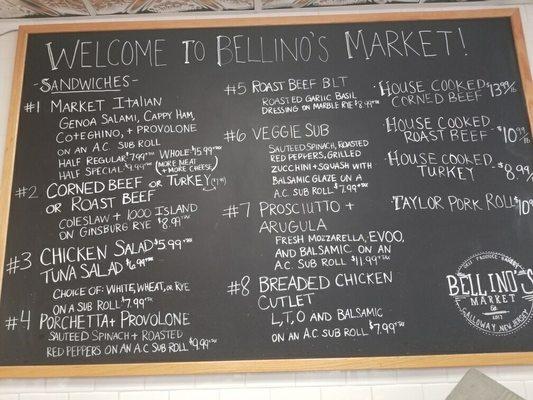 WELCOME TO BELLINO'S MARKET!
-SANDWICHES-
#1 MARKET ITALIAN
GENOA SALAMI, CAPPY HAM,
COTEGHINO, + PROVOLONE
ON AN A.C. SUB ROLL
HALF REGULAR $7.99 +TAX WHOLE $15.99
HALF SPECIAL $9.99 +TAX (MORE MEAT + MORE CHEESE)
#2 CORNED BEEF OR TURKEY
OR ROAST BEEF
COLESLAW + 1000 ISLAND
ON GINSBURG RYE $8.99 +TAX
#3 CHICKEN SALAD $5.99 +TAX
TUNA SALAD $6.99 +TAX
CHOICE OF: WHITE, WHEAT, OR RYE
ON A SUB ROLL $7.99 +TAX
#4 PORCHETTA + PROVOLONE
SAUTEED SPINACH + ROASTED
RED PEPPERS ON AN A.C SUB ROLL $9.99 +TAX
#5 ROAST BEEF BLT
ROASTED GARLIC BASIL
DRESSING ON MARBLE RYE $8.99 +TAX
#6 VEGGIE SUB
SAUTEED SPINACH, ROASTED
RED PEPPERS, GRILLED
ZUCCHINI + SQUASH WITH
BALSAMIC GLAZE ON A
A.C. SUB ROLL $7.99 +TAX
#7 PROSCIUTTO +
ARUGULA
FRESH MOZZARELLA, EVOO,
AND BALSAMIC ON AN
A.C. SUB ROLL $11.99 +TAX
#8 BREADED CHICKEN
CUTLET
L, T, O AND BALSAMIC
ON AN A.C. SUB ROLL $7.99 +TAX
HOUSE COOKED $13.99/lb
CORNED BEEF
HOUSE COOKED
ROAST BEEF - $10.99
HOUSE COOKED
TURKEY - $8.99
TAYLOR PORK ROLL $10.99
DELI PRODUCE BAKERY
BELLINO'S
MARKET
Co
2017
GALLOWAY, NEW JERSEY